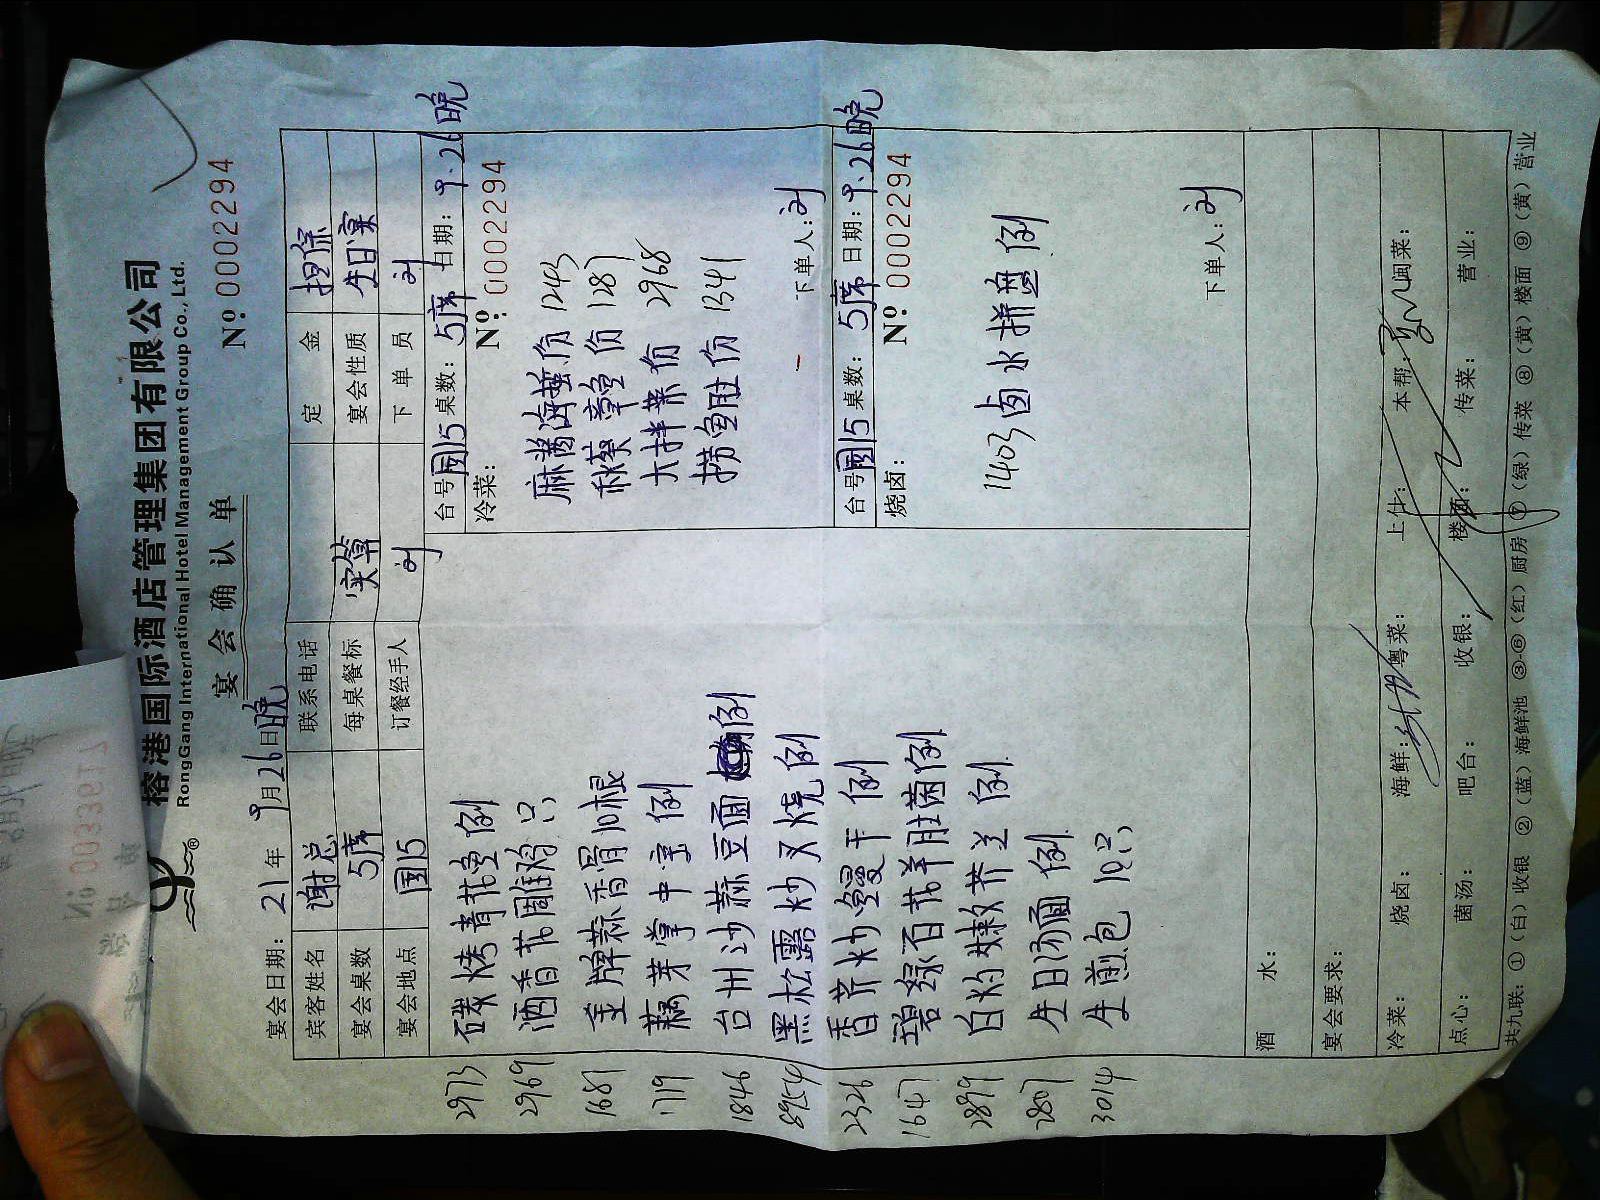 榕港国际酒店管理集团有限公司
RongGang International Hotel Management Group Co., Ltd.
宴会确认单
Nº:0002294
宴会日期: 21年9月26日晚
宾客姓名 谢总 联系电话 定金 担保
宴会桌数 5席 每桌餐标 实算 宴会性质 生日宴
宴会地点 国15 订餐经手人 刘 下单员 刘
2973 碳烤青花鱼 例
2969 酒香花雕鸡 只
1687 金牌蒜香骨10根
1719 藕芽掌中宝 例
1846 台州沙蒜豆面 例
8954 黑松露炒叉烧 例
2326 香芹炒鳗干 例
1647 碧绿百花羊肚菌 例
2899 白灼辣芥兰 例
2807 生日汤面 例
3014 生煎包 10只
台号:国15 桌数: 5席 日期: 9.26晚
冷菜: Nº: 0002294
麻酱海蜇 份 1243
秋葵章鱼 份 1287
大拌菜 份 2968
捞鱼肚 份 1341
下单人:刘
台号:国15 桌数: 5席 日期: 9.26晚
烧卤: Nº 0002294
1403 卤水拼盘 例
下单人:刘
酒水:
宴会要求:
冷菜: 烧卤: 海鲜: 粤菜: 上什: 本帮: 闽菜:
点心: 菌汤: 吧台: 收银: 楼面: 传菜: 营业:
共九联: ①(白)收银 ②(蓝)海鲜池 ③-⑥(红)厨房 ⑦(绿)传菜 ⑧(黄)楼面 ⑨(黄)营业